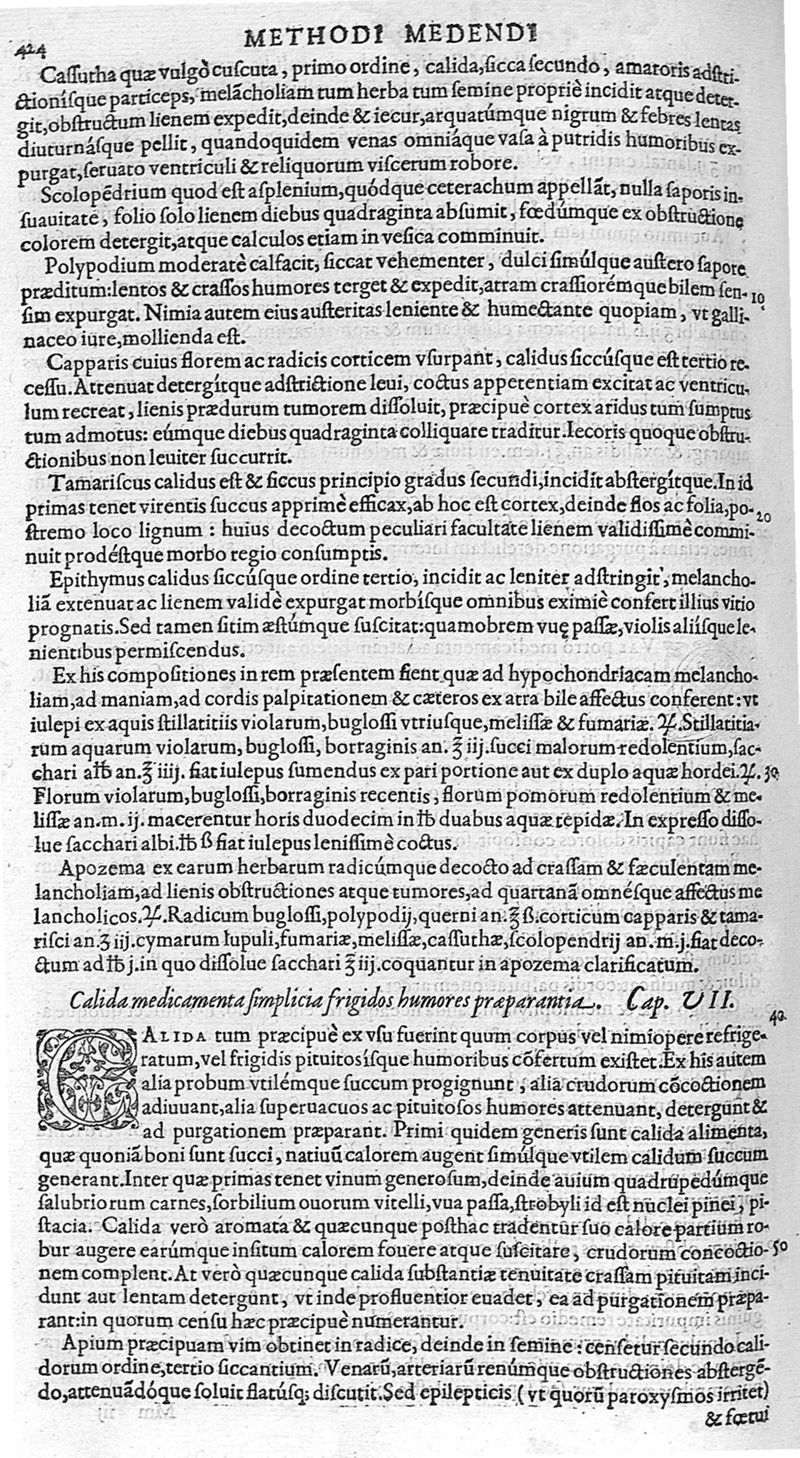 424
METHODI MEDENDI
Cassutha quæ vulgò cuscuta, primo ordine, calida, sicca secundo, amaroris adstri-
ctionísque particeps, melãcholiam tum herba tum semine propriè incidit atque deter-
git, obstructum lienem expedit, deinde & iecur, arquatúmque nigrum & febres lentas
diuturnásque pellit, quandoquidem venas omniáque vasa à putridis humoribus ex-
purgat, seruato ventriculi & reliquorum viscerum robore.
Scolopẽdrium quod est asplenium, quódque ceterachum appellãt, nulla saporis in-
suauitate, folio solo lienem diebus quadraginta absumit, fœdúmque ex obstructione
colorem detergit, atque calculos etiam in vesica comminuit.
Polypodium moderatè calfacit, siccat vehementer, dulci simúlque austero sapore
præditum: lentos & crassos humores terget & expedit, atram crassiorémque bilem sen- 10
sim expurgat. Nimia autem eius austeritas leniente & humectante quopiam, vt galli-
naceo iure, mollienda est.
Capparis cuius florem ac radicis corticem vsurpant, calidus siccúsque est tertio re-
cessu. Attenuat detergítque adstrictione leui, coctus appetentiam excitat ac ventricu-
lum recreat, lienis prædurum tumorem dissoluit, præcipuè cortex aridus tum sumptus
tum admotus: eúmque diebus quadraginta colliquare traditur. Iecoris quoque obstru-
ctionibus non leuiter succurrit.
Tamariscus calidus est & siccus principio gradus secundi, incidit abstergítque. In id
primas tenet virentis succus apprimè efficax, ab hoc est cortex, deinde flos ac folia, po- 20
stremo loco lignum: huius decoctum peculiari facultate lienem validissimè commi-
nuit prodéstque morbo regio consumptis.
Epithymus calidus siccúsque ordine tertio, incidit ac leniter adstringit, melancho-
liã extenuat ac lienem validè expurgat morbísque omnibus eximiè confert illius vitio
prognatis. Sed tamen sitim æstúmque suscitat: quamobrem vuę passæ, violis aliísque le-
nientibus permiscendus.
Ex his compositiones in rem præsentem fient quæ ad hypochondriacam melancho-
liam, ad maniam, ad cordis palpitationem & cæteros ex atra bile affectus conferent: vt
iulepi ex aquis stillatitiis violarum, buglossi vtriusque, melissæ & fumariæ. ℞. Stillatitia-
rum aquarum violarum, buglossi, borraginis an. ℥ iij. succi malorum redolentium, sac-
chari alb an. ℥ iiij. fiat iulepus sumendus ex pari portione aut ex duplo aquæ hordei. ℞. 30
Florum violarum, buglossi, borraginis recentis, florum pomorum redolentium & me-
lissæ an. m. ij. macerentur horis duodecim in ℔ duabus aquæ tepidæ. In expresso disso-
lue sacchari albi. ℔ ß fiat iulepus lenissimè coctus.
Apozema ex earum herbarum radicúmque decocto ad crassam & fæculentam me-
lancholiam, ad lienis obstructiones atque tumores, ad quartanã omnésque affectus me
lancholicos. ℞. Radicum buglossi, polypodij, querni an. ℥ ß. corticum capparis & tama-
risci an. ℥ iij. cymarum lupuli, fumariæ, melissæ, cassuthæ, scolopendrij an. m. j. fiat deco-
ctum ad ℔ j. in quo dissolue sacchari ℥ iij. coquantur in apozema clarificatum.
Calida medicamenta simplicia frigidos humores præparantia. Cap. VII.
40
CALIDA tum præcipuè ex vsu fuerint quum corpus vel nimiopere refrige-
ratum, vel frigidis pituitosísque humoribus cõfertum existet. Ex his autem
alia probum vtilémque succum progignunt, alia crudorum cõcoctionem
adiuuant, alia superuacuos ac pituitosos humores attenuant, detergunt &
ad purgationem præparant. Primi quidem generis sunt calida alimenta,
quæ quoniã boni sunt succi, natiuũ calorem augent simúlque vtilem calidum succum
generant. Inter quæ primas tenet vinum generosum, deinde auium quadrupedúmque
salubriorum carnes, sorbilium ouorum vitelli, vua passa, strobyli id est nuclei pinei, pi-
stacia. Calida verò aromata & quæcunque posthac tradentur suo calore partium ro-
bur augere earúmque insitum calorem fouere atque suscitare, crudorum concoctio- 50
nem complent. At verò quæcunque calida substantiæ tenuitate crassam pituitam inci-
dunt aut lentam detergunt, vt inde profluentior euadet, ea ad purgationem præpa-
rant: in quorum censu hæc præcipuè numerantur.
Apium præcipuam vim obtinet in radice, deinde in semine: censetur secundo cali-
dorum ordine, tertio siccantium. Venarũ, arteriarũ renúmque obstructiones abstergẽ-
do, attenuãdóque soluit flatúsq; discutit. Sed epilepticis (vt quorũ paroxysmos irritet)
& fœtui